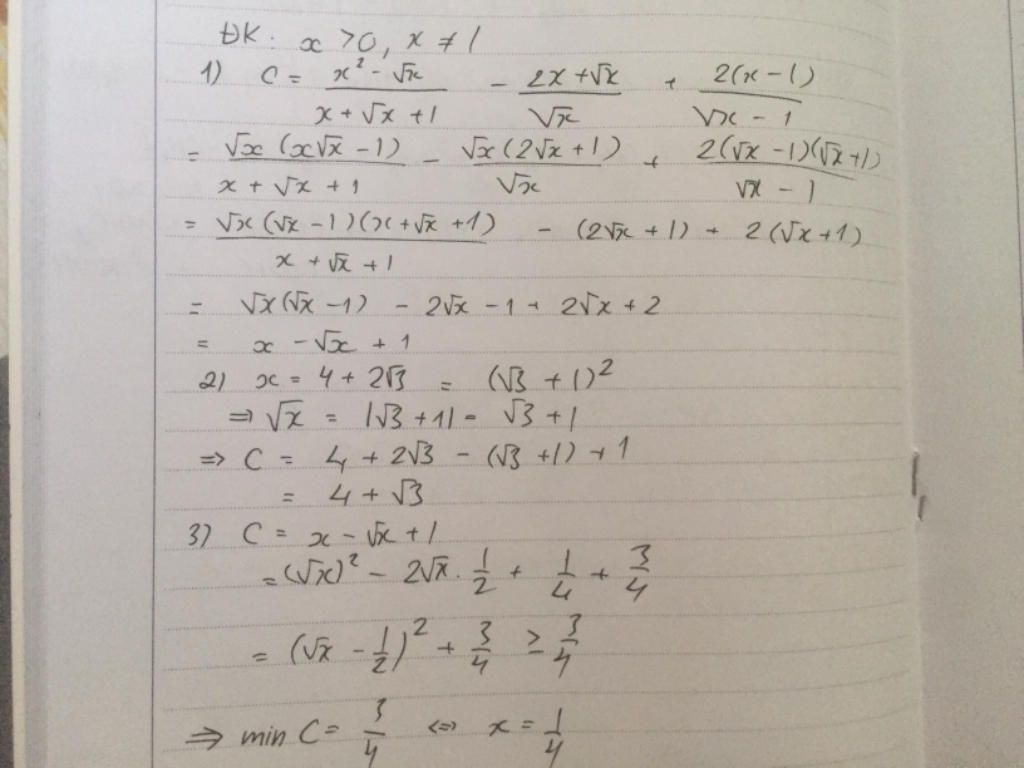 ĐK: x > 0, x ≠ 1
1) C = (x² - √x)/(x + √x + 1) - (2x + √x)/√x + (2(x - 1))/(√x - 1)
= (√x (x√x - 1))/(x + √x + 1) - (√x (2√x + 1))/√x + (2(√x - 1)(√x + 1))/(√x - 1)
= (√x (√x - 1)(x + √x + 1))/(x + √x + 1) - (2√x + 1) + 2(√x + 1)
= √x(√x - 1) - 2√x - 1 + 2√x + 2
= x - √x + 1
2) x = 4 + 2√3 = (√3 + 1)²
⇒ √x = |√3 + 1| = √3 + 1
⇒ C = 4 + 2√3 - (√3 + 1) + 1
= 4 + √3
3) C = x - √x + 1
= (√x)² - 2√x . 1/2 + 1/4 + 3/4
= (√x - 1/2)² + 3/4 ≥ 3/4
⇒ min C = 3/4 ⇔ x = 1/4